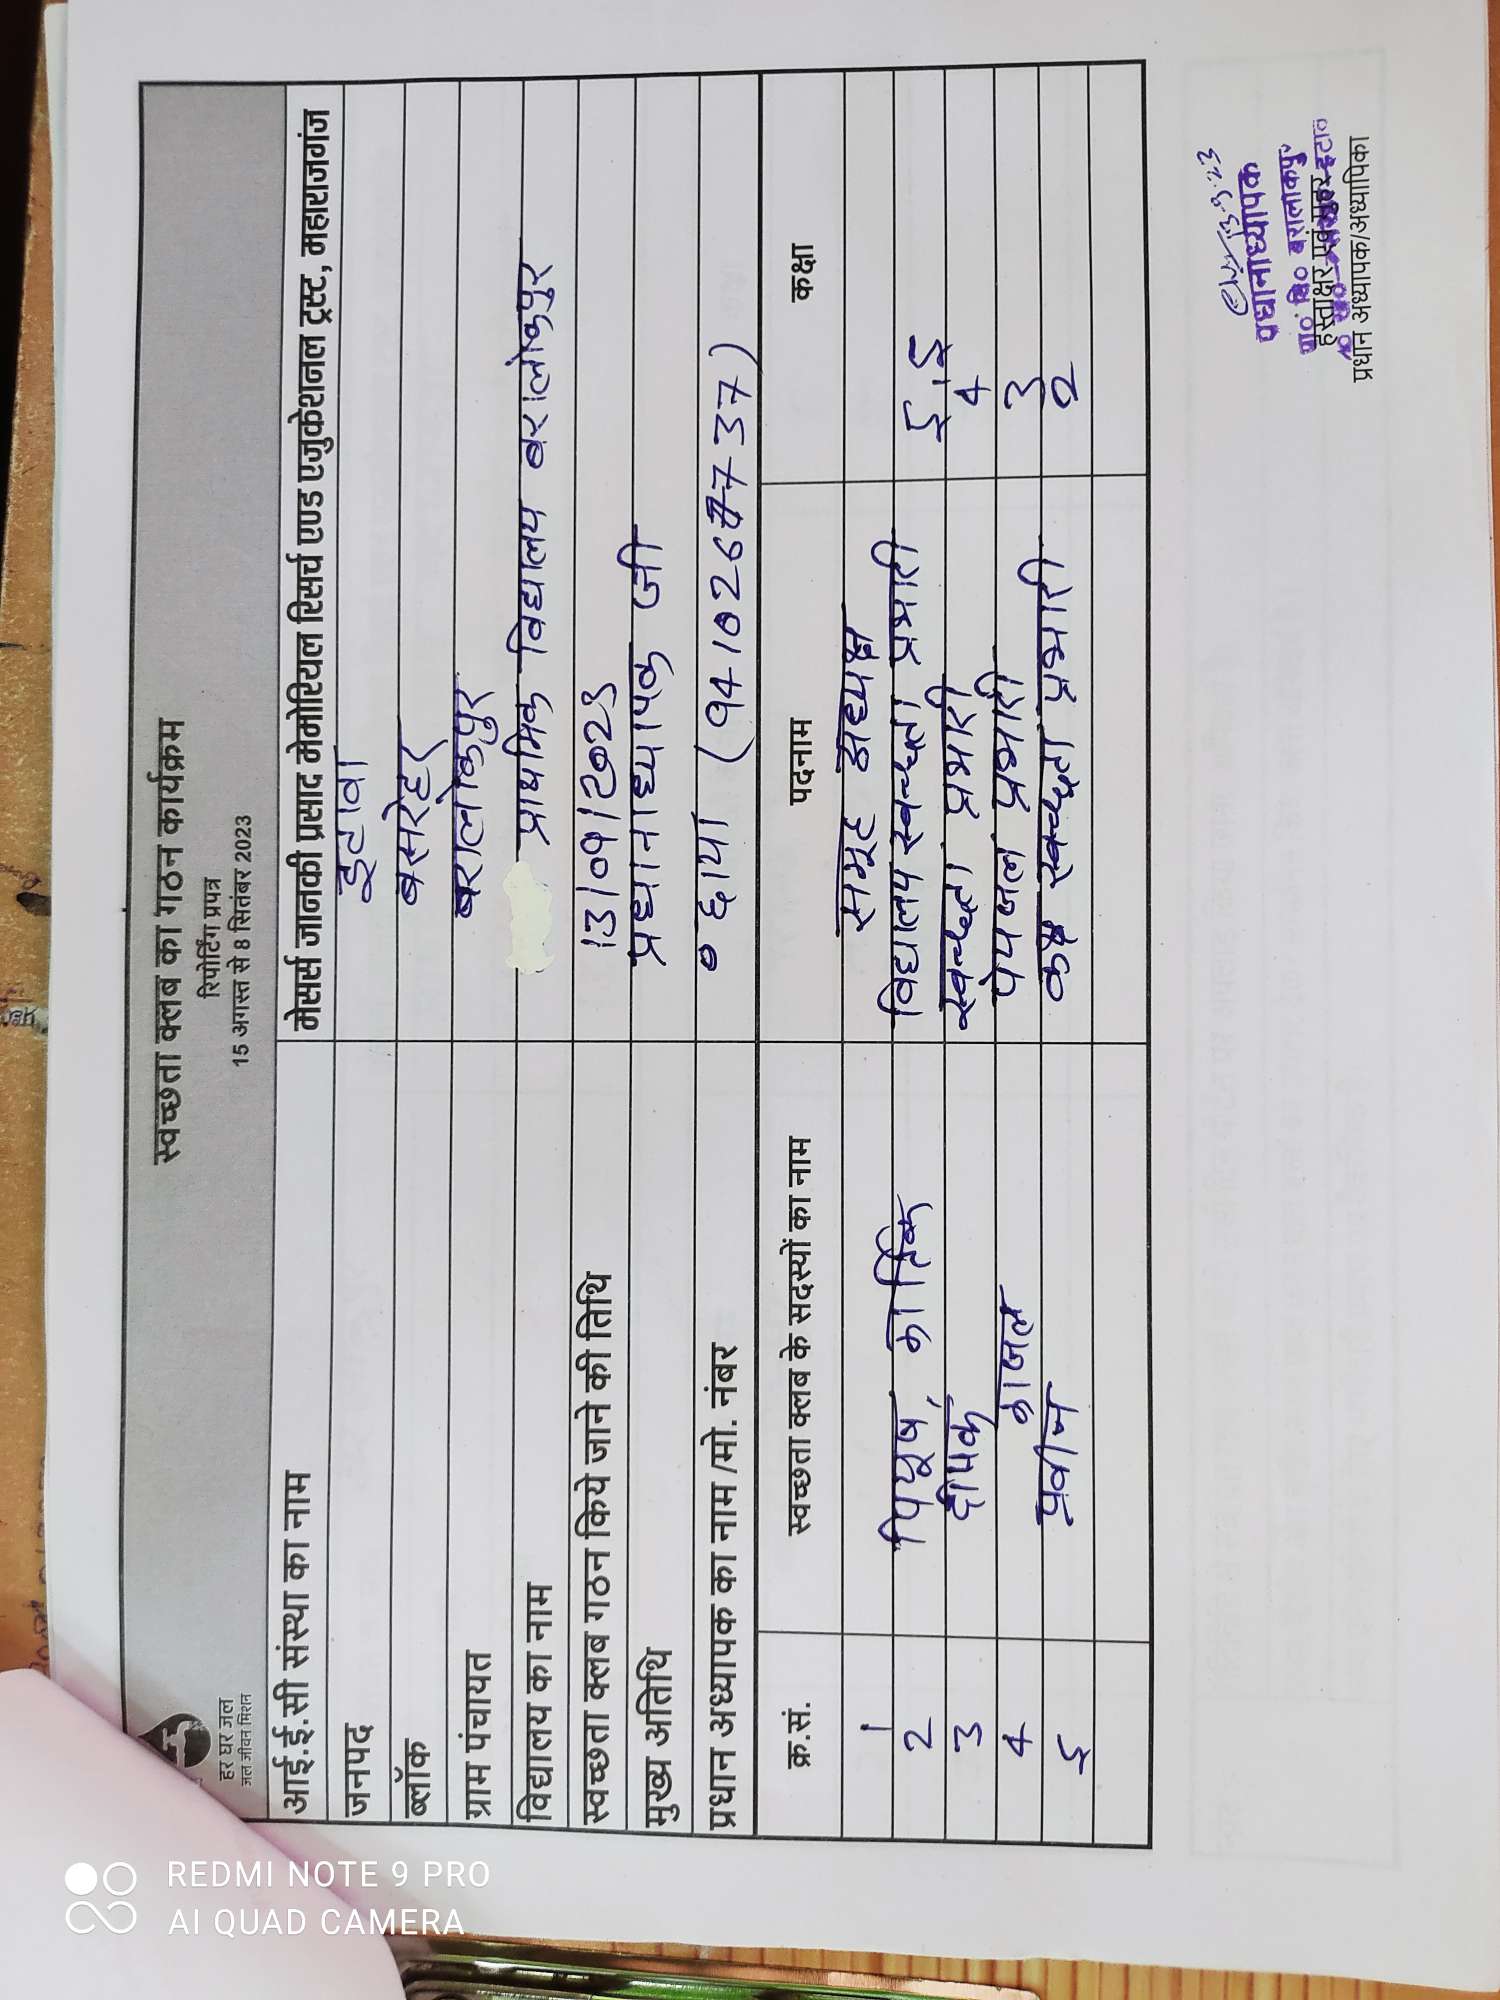 स्वच्छता क्लब का गठन कार्यक्रम
रिपोर्टिंग प्रपत्र
15 अगस्त से 8 सितंबर 2023
हर घर जल
जल जीवन मिशन
आई.ई.सी संस्था का नाम मेसर्स जानकी प्रसाद मेमोरियल रिसर्च एण्ड एजुकेशनल ट्रस्ट, महाराजगंज
जनपद इटावा
ब्लॉक बसरेहर
ग्राम पंचायत बरालोकपुर
विद्यालय का नाम प्राथमिक विद्यालय बरालोकपुर
स्वच्छता क्लब गठन किये जाने की तिथि 13/09/2023
मुख्य अतिथि प्रधानाध्यापक जी
प्रधान अध्यापक का नाम /मो. नंबर छाया
क्र.सं. स्वच्छता क्लब के सदस्यों का नाम पदनाम कक्षा
1 समूह अध्यक्ष
2 पियूष, कार्तिक विद्यालय स्वच्छता प्रभारी 5,5
3 दीपक स्वच्छता प्रभारी 4
4 काजल पेयजल प्रभारी 3
5 प्रवीन कक्ष स्वच्छता प्रभारी 2
13-9-23
प्रधानाध्यापक
प्रा० वि० बरालोकपुर
हस्ताक्षर एवं मुहर
प्रधान अध्यापक/अध्यापिका
REDMI NOTE 9 PRO
AI QUAD CAMERA